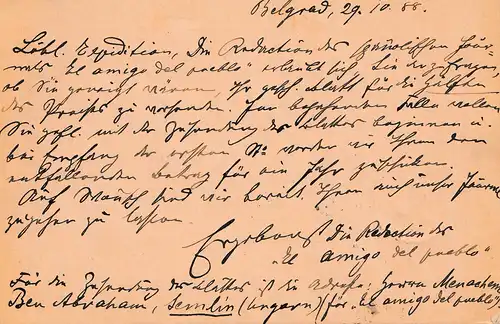 Belgrad, 29. 10. 88.
Löbl. Expedition, Die Redaction des spanolischen Jour-
nals "El amigo del pueblo" erlaubt sich Sie anzufragen
ob Sie geneigt wären, Ihr gesch. Blatt für die Hälfte
des Preises zu versenden. Im bejahenden Falle wollen
Sie gefl. mit der Zusendung des Blattes beginnen u.
bei Empfang der ersten No werden wir Ihnen den
entfallenden Betrag für ein Jahr zuschicken.
Auf Wunsch sind wir bereit, Ihnen auch unser Journ.
zugehen zu lassen.
Ergebenst Die Redaction des
"El amigo del pueblo"
Für die Zusendung des Blattes ist die Adresse: Herrn Menachem
Ben Abraham, Semlin (Ungarn) für "El amigo del pueblo"